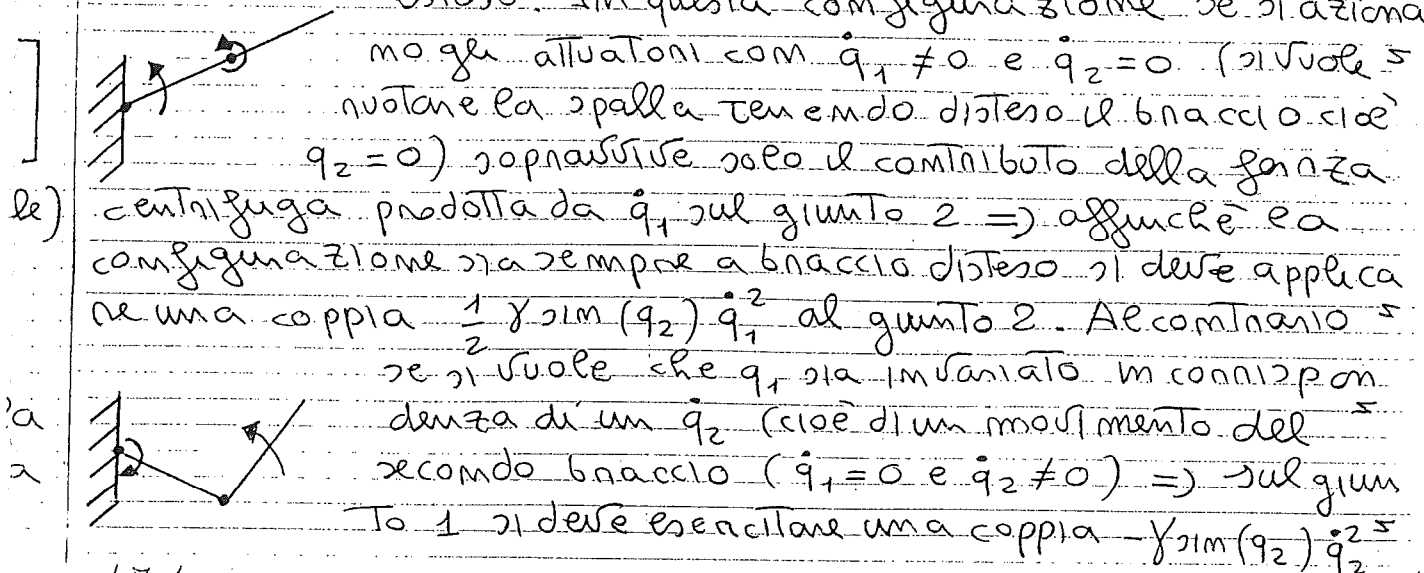 In questa configurazione se si aziona
mo gli attuatori con q̇₁ ≠ 0 e q̇₂ = 0 (si vuole
ruotare la spalla tenendo disteso il braccio cioè
q₂ = 0) sopravvive solo il contributo della forza
le) centrifuga prodotta da q̇₁ sul giunto 2 => affinchè la
configurazione sia sempre a braccio disteso si deve applica
re una coppia 1/2 γ sin(q₂) q̇₁² al giunto 2. Al contrario
se si vuole che q₁ sia invariato in corrispon
'a denza di un q̇₂ (cioè di un movimento del
a secondo braccio (q̇₁ = 0 e q̇₂ ≠ 0) => sul giun
to 1 si deve esercitare una coppia -γ sin(q₂) q̇₂²